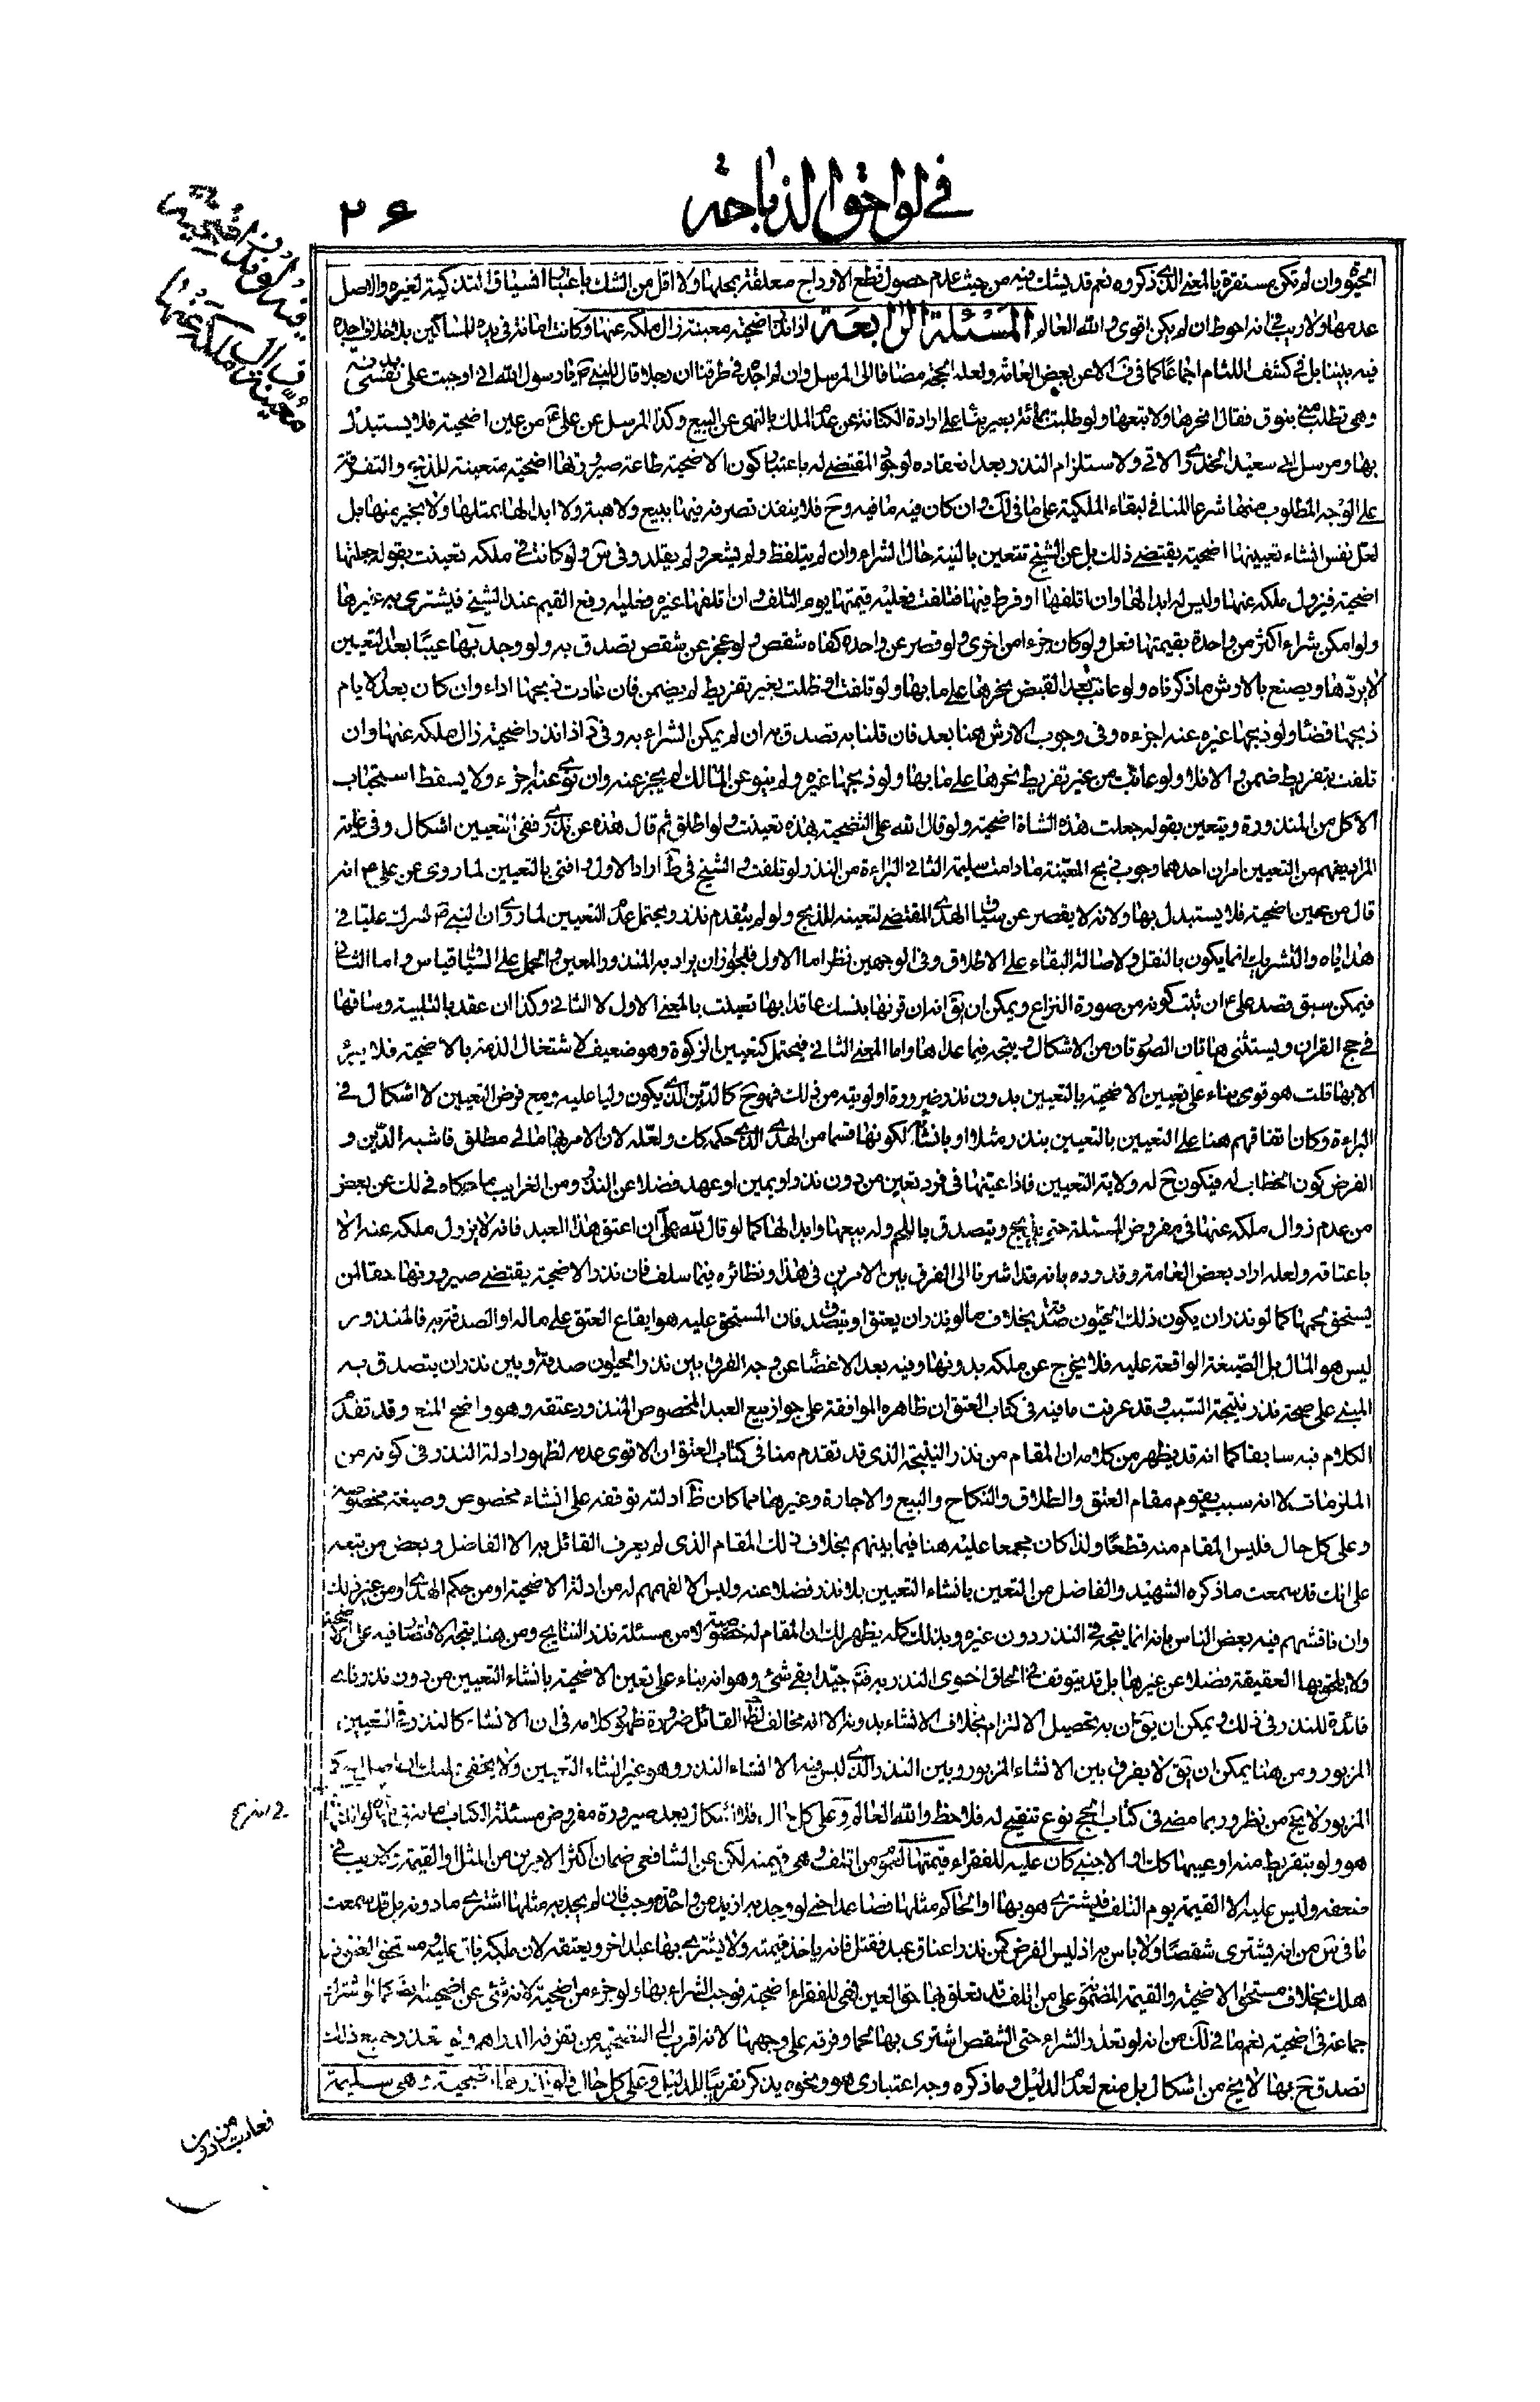 في لواحق الذباحة
٢۶
فيما لو نذر اضحية معينة زال ملكه عنها
الحيوة وان لم تكن مستقرة بالمعنى الذي ذكروه نعم قد يشك فيه من حيث عدم حصول قطع الاوداج معلقة بمحلها ولا اقل من الشك باعتبار انسياق التذكية لغيره والاصل
عدمها ولا ريب في انه احوط ان لم يكن اقوى والله العالم المسئلة الرابعة اذا نذر اضحية معينة زال ملكه عنها وكانت امانة في يده للمساكين بلا خلاف اجده
فيه بيننا بل في كشف اللثام اجماعا كما في ف الا عن بعض العامة ولعله الحجة مضافا الى المرسل وان لم اجده في طرقنا ان رجلا قال للنبي ص يا رسول الله اني اوجبت على نفسي بدنة
وهي تطلب مني بنوق فقال انحرها ولا تبعها ولو طلبت بمائة بعير بناء على ارادة الكناية عن عدم الملك بالنهي عن البيع وكذا المرسل عن علي ع من عين اضحية فلا يستبدل
بها ومرسل ابي سعيد الخدري الاتي ولاستلزام النذر بعد انعقاده لوجود المقتضي له باعتبار كون الاضحية طاعة صيرورتها اضحية متعينة للذبح والتفرقة
على الوجه المطلوب منها شرعا المنافي لبقاء الملكية على ما في لك وان كان فيه ما فيه وح فلا ينفذ تصرفه فيها ببيع ولا هبة ولا ابدالها بمثلها ولا بخير منها بل
لعل نفس انشاء تعيينها اضحية يقتضي ذلك بل عن الشيخ تتعين بالنية حال الشراء وان لم يتلفظ ولم يشعر ولم يقلد وفي س ولو كانت في ملكه تعينت بقوله جعلتها
اضحية فيزول ملكه عنها وليس له ابدالها وان اتلفها او فرط فيها فتلفت فعليه قيمتها يوم التلف وان اتلفها غيره فعليه رفع القيم عند الشيخ فيشتري به غيرها
ولو امكن شراء اكثر من واحدة بقيمتها فعل ولو كان جزءا من اخرى ولو قصر عن واحدة كفاه شقص ولو عجز عن شقص تصدق به ولو وجد بها عيبا بعد التعيين
لا يردها ويصنع بالارش ما ذكرناه ولو عابت بعد القبض نحرها على ما بها ولو تلفت او ظلت بغير تفريط لم يضمن فان عادت ذبحها اداء وان كان بعد الايام
ذبحها قضاء ولو ذبحها غيره عنه اجزءه وفي وجوب الارش هنا بعد فان قلنا به تصدق به ان لم يمكن الشراء به وفي د اذا نذر اضحية زال ملكه عنها وان
تلفت بتفريط ضمن والا فلا ولو عابت من غير تفريط نحرها على ما بها ولو ذبحها غيره ولم ينو عن المالك لم يجز عنه وان نوى عنه اجزء ولا يسقط استحباب
الاكل من المنذورة ويتعين بقوله جعلت هذه الشاة اضحية ولو قال لله علي التضحية بهذه تعينت ولو اطلق ثم قال هذه عن نذري ففي التعيين اشكال وفي غاية
المراد يفهم من التعيين امران احدهما وجوب ذبح المعينة ما دامت سليمة الثاني البراءة من النذر لو تلفت والشيخ في ط اراد الاول وافتى بالتعيين لما روي عن علي ع انه
قال من عين اضحية فلا يستبدل بها ولانه لا يقصر عن سياق الهدي المقتضي لتعينه للذبح ولو لم يتقدم نذر ويحتمل عدم التعيين لما روي ان النبي ص اشرك عليا في
هداياه والتشريك انما يكون بالنقل ولاصالة البقاء على الاطلاق وفي الوجهين نظر اما الاول فلجواز ان يراد به المنذور المعين والحمل على السياق قياس واما الثاني
فيمكن سبق قصد علي ع ان ثبت كونه من صورة النزاع ويمكن ان يق انه ان قرنها بنسك عاقدا بها تعينت بالمعنى الاول لا الثاني وكذا ان عقد بالتلبية وساقها
في حج القران ويستثنى هاتان الصورتان من الاشكال ويتجه فيما عداها واما المعنى الثاني فيحتمل كتعيين الزكوة وهو ضعيف لاشتغال الذمة بالاضحية فلا يبرء
الا بها قلت هو قوي بناء على تعيين الاضحية بالتعيين بدون نذر ضرورة اولويته من ذلك فهو ح كالدين الذي يكون وليا عليه ومع فرض التعيين لا اشكال في
البراءة وكان اتفاقهم هنا على التعيين بالتعيين بنذر مثلا او بانشاء لكونها قسما من الهدي الذي حكمه كك ولعله لان الامر بها مالي مطلق فاشبه الدين و
الفرض كون الخطاب له فيكون ح له ولاية التعيين فاذا عينها في فرد تعين من دون نذر او يمين او عهد فضلا عن النذر ومن الغرايب ما حكاه في لك عن بعض
من عدم زوال ملكه عنها في مفروض المسئلة حتى يذبح ويتصدق باللحم وله بيعها وابدالها كما لو قال لله علي ان اعتق هذا العبد فانه لا يزول ملكه عنه الا
باعتاقه ولعله اراد بعض العامة وقد رده بانه قد اشرنا الى الفرق بين الامرين في هذا ونظائره فيما سلف فان نذر الاضحية يقتضي صيرورتها حقا لمن
يستحق لحمها كما لو نذر ان يكون ذلك الحيوان صدقة بخلاف ما لو نذر ان يعتق او يتصدق فان المستحق عليه هو ايقاع العتق على ماله او الصدقة به فالمنذور
ليس هو المال بل الصيغة الواقعة عليه فلا يخرج عن ملكه بدونها وفيه بعد الاغضاء عن وجه الفرق بين نذر الحيوان صدقة وبين نذر ان يتصدق به
المبني على صحة نذر نتيجة السبب وقد عرفت ما فيه في كتاب العتق ان ظاهره الموافقة على جواز بيع العبد المخصوص المنذور عتقه وهو واضح المنع وقد تقدم
الكلام فيه سابقا كما انه قد يظهر من كلامه ان المقام من نذر النتيجة الذي قد تقدم منا في كتاب العتق ان الاقوى عدمه لظهور ادلة النذر في كونه من
الملزمات لا انه سبب يقوم مقام العتق والطلاق والنكاح والبيع والاجارة وغيرها مما كان ظ ادلته توقفه على انشاء مخصوص وصيغة مخصوصة
وعلى كل حال فليس المقام منه قطعا ولذا كان مجمعا عليه هنا فيما بينهم بخلاف ذلك المقام الذي لم يعرف القائل به الا الفاضل وبعض من تبعه
على انك قد سمعت ما ذكره الشهيد والفاضل من التعين بانشاء التعيين بلا نذر فضلا عنه وليس الا لفهمهم له من ادلة الاضحية او من حكم الهدي او من غير ذلك
وان ناقشهم فيه بعض الناس بانه انما يتجه في النذر دون غيره وبذلك كله يظهر لك ان المقام له خصوصية لا من مسئلة نذر النتايج ومن هنا يتجه الاقتصار فيه على الاضحية
ولا يلحق بها العقيقة فضلا عن غيرها بل قد يتوقف في الحاق اخوي النذر به فتم جيدا بقي شئ وهو انه بناء على تعين الاضحية بانشاء التعيين من دون نذر فاي
فائدة للنذر في ذلك ويمكن ان يق ان به تحصيل الالتزام بخلاف الانشاء بدونه الا انه مخالف لظ القائل ضرورة ظهور كلامه في ان الانشاء كالنذر في التعيين
المزبور ومن هنا يمكن ان يق لا يفرق بين الانشاء المزبور وبين النذر الذي ليس فيه الا انشاء النذر وهو غير انشاء التعيين ولا يخفى
المزبور لا يخ من نظر وربما مضى في كتاب الحج نوع تنقيح له فلاحظ والله العالم وعلى كل حال فلا اشكال بعد صيرورة مفروض مسئلة الكتاب
هو ولو بتفريط منه او عيبها كك او الاجنبي كان عليه للفقراء قيمتها لعموم من اتلف وهي قيمته لكن عن الشافعي ضمان اكثر الامرين من المثل والقيمة ولا ريب في
ضعفه وليس عليه الا القيمة يوم التلف فيشتري هو بها او الحاكم مثلها فصاعدا حتى لو وجد به ازيد من واحدة وجب فان لم يجد به مثلها اشترى ما دونه بل قد سمعت
ما في س من انه يشتري شقصا ولا باس به اذ ليس الفرض كمن نذر اعتاق عبد فقتل فانه ياخذ قيمته ولا يشتري بها عبدا اخر ويعتقه لان ملكه باق عليه ومستحق العتق
هلك بخلاف مستحق الاضحية والقيمة المضمونة على من اتلف قد تعلق بها حق العين فهي للفقراء اضحية فوجب الشراء بها ولو جزء من اضحية
جماعة في اضحية نعم ما في لك من انه لو تعذر الشراء حتى الشقص اشترى بها لحما وفرقه على وجهها لانه اقرب الى التضحية من تفرقة الدراهم ولو تعذر جميع ذلك
تصدق ح بها لا يخ من اشكال بل منع لعدم الدليل وما ذكره وجه اعتباري هو ونحوه يذكر تقريبا للدليل وعلى كل حال فلو نذرها اضحية وهي سليمة
فعابت من دون